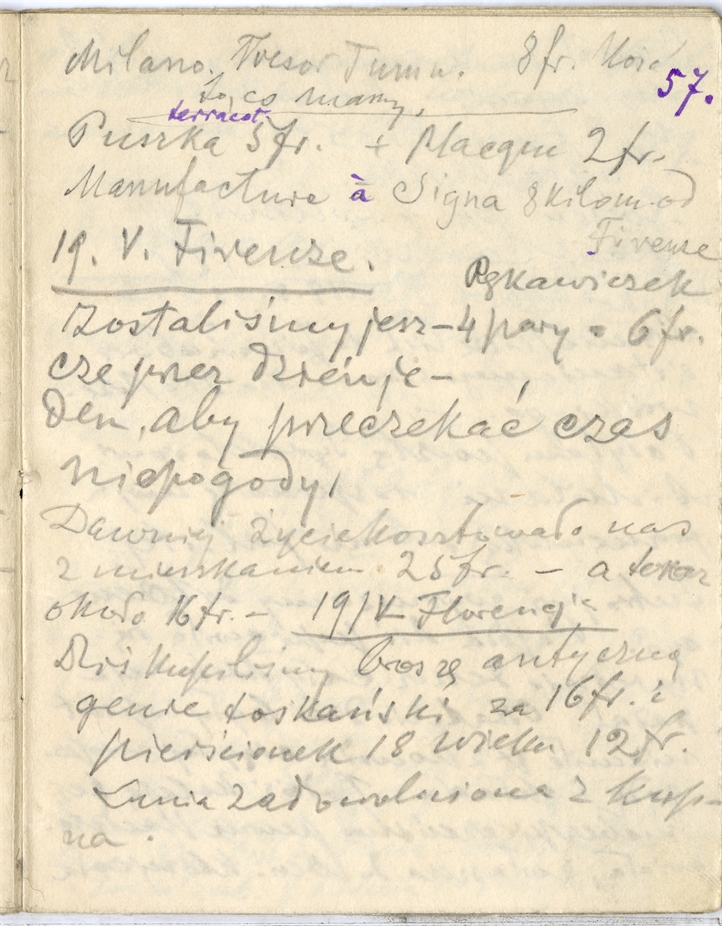 Milano. Tresor 8 fr.
57.
to, co mamy,
terracot.
Puszka 5 fr. + Plaque 2 fr.
Manufacture à Signa 8 kilom. od
Firenze
19. V. Firenze.
Rękawiczek
Zostaliśmy jesz- 4 pary = 6 fr.
cze przez dzień je-
den, aby przeczekać czas
niepogody,
Dawniej życie kosztowało nas
z mieszkaniem 25 fr. - a teraz
około 16 fr. - 19/V Florencja
Dziś kupiliśmy broszę antyczną
genre toskański za 16 fr. i
pierścionek 18 wieku 12 fr.
Lunia zadowolniona z kup-
na.